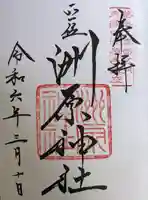 奉拝
洲原神社
令和六年三月十日